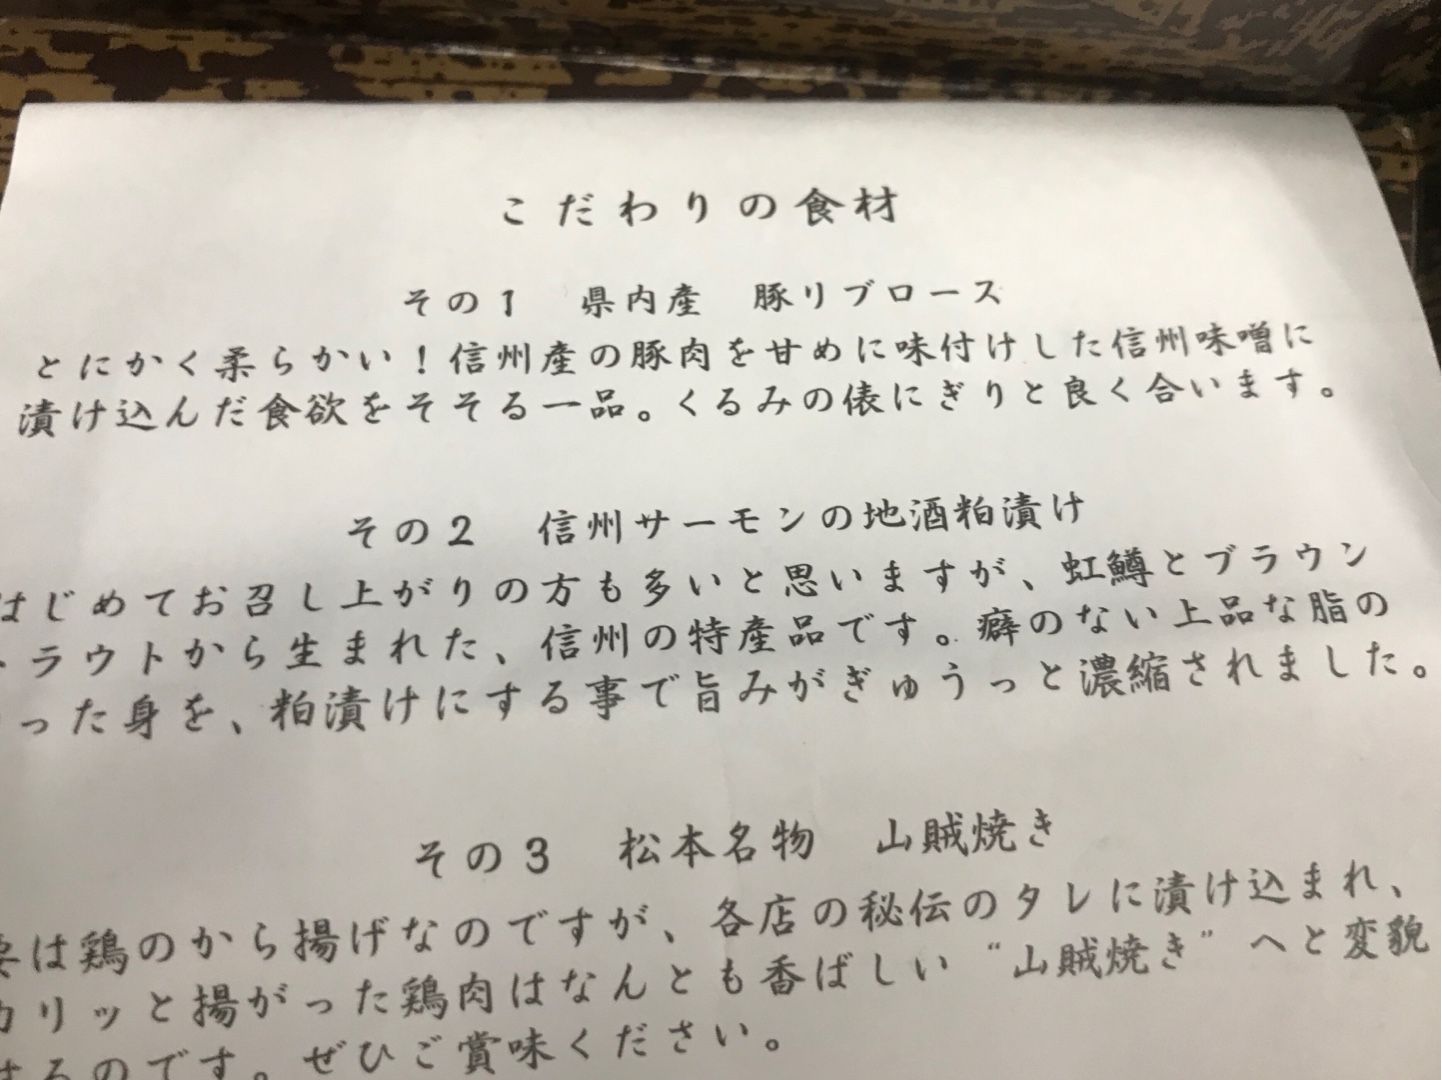 こだわりの食材
その1 県内産 豚リブロース
とにかく柔らかい!信州産の豚肉を甘めに味付けした信州味噌に
漬け込んだ食欲をそそる一品。くるみの俵にぎりと良く合います。
その2 信州サーモンの地酒粕漬け
はじめてお召し上がりの方も多いと思いますが、虹鱒とブラウン
トラウトから生まれた、信州の特産品です。癖のない上品な脂の
った身を、粕漬けにする事で旨みがぎゅうっと濃縮されました。
その3 松本名物 山賊焼き
要は鶏のから揚げなのですが、各店の秘伝のタレに漬け込まれ、
カリッと揚がった鶏肉はなんとも香ばしい“山賊焼き”へと変貌
するのです。ぜひご賞味ください。